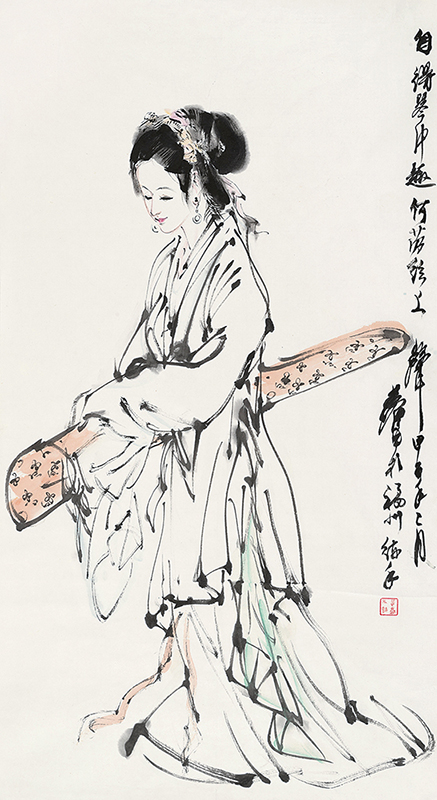 自得琴中趣何劳弦上
聲甲子年二月
黄胄於福州